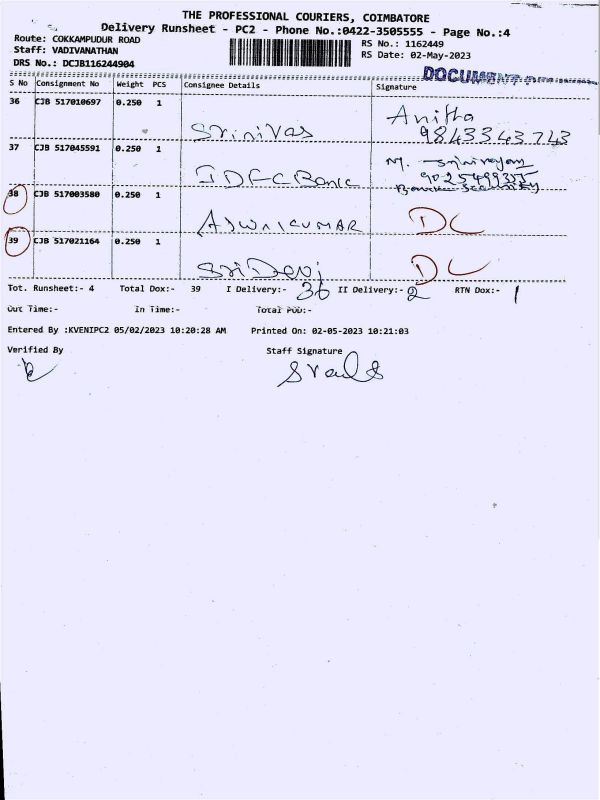 THE PROFESSIONAL COURIERS, COIMBATORE
Delivery Runsheet - PC2 - Phone No.:0422-3505555 - Page No.:4
Route: COKKAMPUDUR ROAD
RS No.: 1162449
Staff: VADIVANATHAN
RS Date: 02-May-2023
DRS No.: DCJB116244904
DOCUMENT
S No Consignment No Weight PCS Consignee Details Signature
36 CJB 517010697 0.250 1 Srinivas Anitha 9843343743
37 CJB 517045591 0.250 1 IDFC Bank M.
38 CJB 517003580 0.250 1 AJWNIKUMAR DL
39 CJB 517021164 0.250 1 Sri Devi DL
Tot. Runsheet:- 4 Total Dox:- 39 I Delivery:- 36 II Delivery:- 2 RTN Dox:- 1
Out Time:- In Time:- Total POD:-
Entered By :KVENIPC2 05/02/2023 10:20:28 AM Printed On: 02-05-2023 10:21:03
Verified By Staff Signature